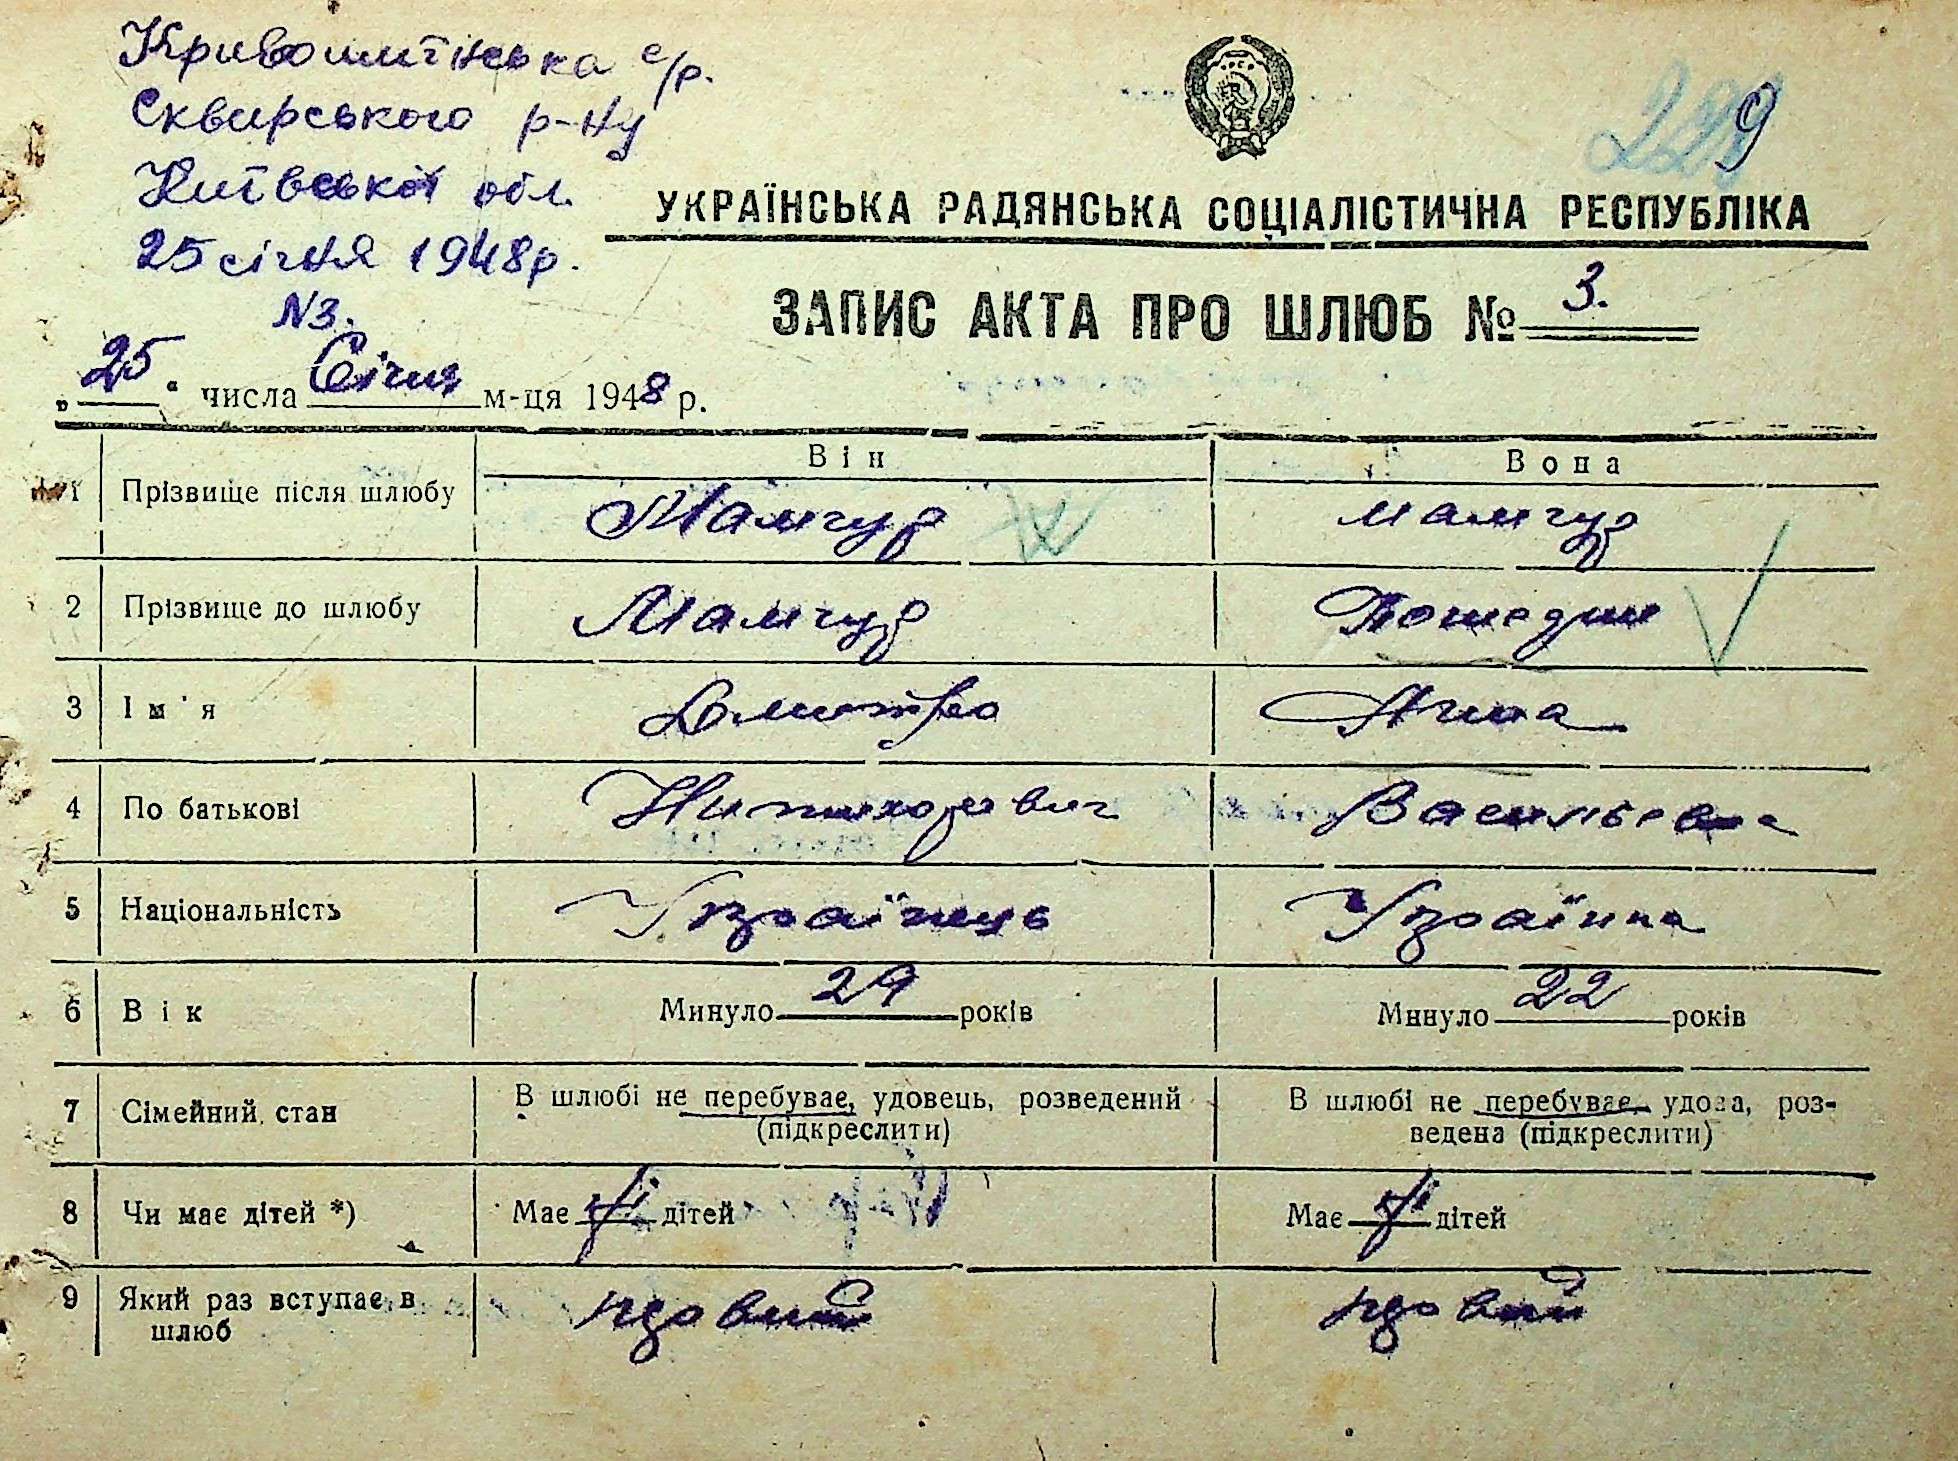 Кривошиїнська с/р.
Сквирського р-ну
Київської обл.
25 січня 1948р.
N3.
229
УКРАЇНСЬКА РАДЯНСЬКА СОЦІАЛІСТИЧНА РЕСПУБЛІКА
ЗАПИС АКТА ПРО ШЛЮБ № 3.
„25“ числа Січня м-ця 1948 р.
Він Вона
1 Прізвище після шлюбу Мамчур Мамчур
2 Прізвище до шлюбу Мамчур
3 Ім'я Дмитро Ганна
4 По батькові Васильевна
5 Національність Українець Українка
6 Вік Минуло 29 років Минуло 22 років
7 Сімейний стан В шлюбі не перебуває, удовець, розведений (підкреслити) В шлюбі не перебуває, удова, роз-
ведена (підкреслити)
8 Чи має дітей *) Має дітей Має дітей
9 Який раз вступає в
шлюб